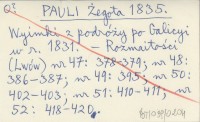 PAULI Żegota 1835.
Wyimki z podróży po Galicyi
w r. 1831. - Rozmaitości
(Lwów) nr 47: 378-379; nr 48:
386-387; nr 49: 395; nr 50:
402-403; nr 51: 410-411; nr
52: 418-420.